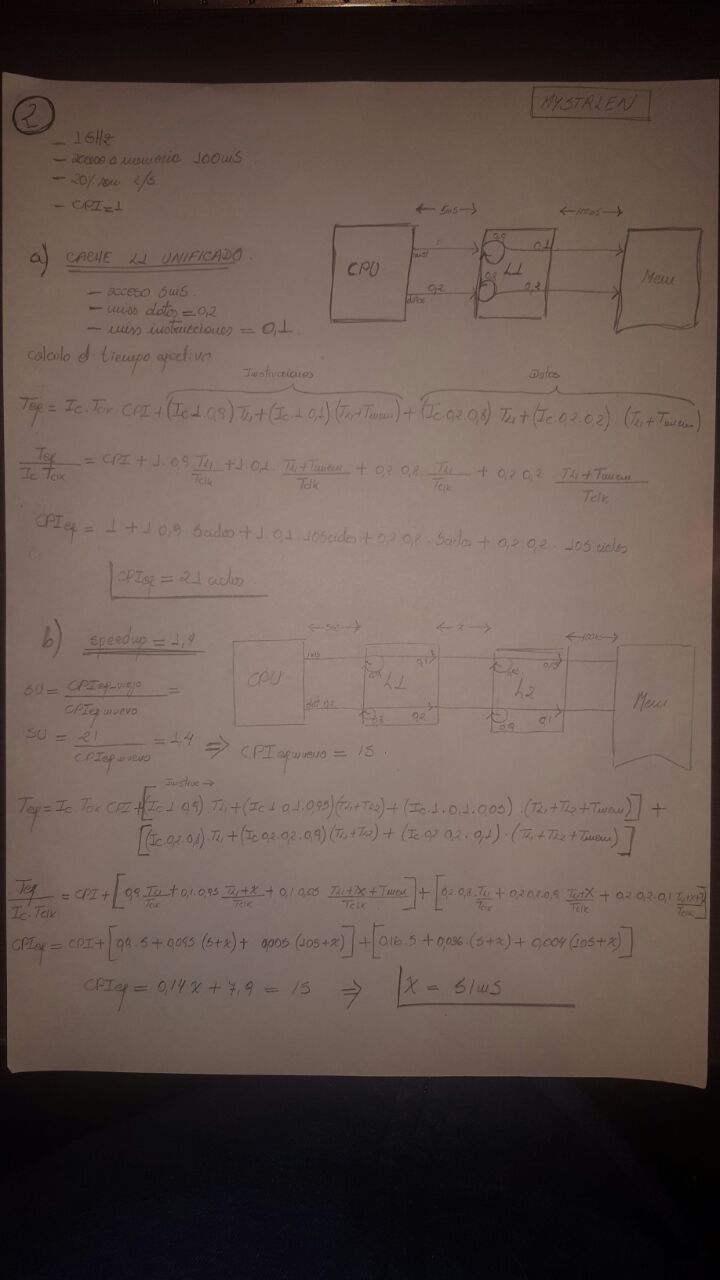 2
MYSTRLEN
- 1GHz
- acceso a memoria 100mS
- 20% son L/S
- CPI=1
a) CACHE L1 UNIFICADO.
- acceso 5mS
- miss datos = 0,2
- miss instrucciones = 0,1
5mS
100mS
CPU
inst
0,9
0,1
L1
datos
0,2
0,8
0,2
Mem
calculo el tiempo efectivo
Instrucciones
Datos
Tef = Ic·Tclk·CPI + (Ic·1·0,9) TL1 + (Ic·1·0,1)·(TL1+Tmem) + (Ic·0,2·0,8) TL1 + (Ic·0,2·0,2)·(TL1+Tmem)
Tef / Ic·Tclk = CPI + 1·0,9 TL1/Tclk + 1·0,1· TL1+Tmem/Tclk + 0,2·0,8· TL1/Tclk + 0,2·0,2 TL1+Tmem/Tclk
CPIef = 1 + 1·0,9·5ciclos + 1·0,1·105ciclos + 0,2·0,8·5ciclos + 0,2·0,2·105 ciclos
CPIef = 21 ciclos
b) speedup = 1,4
5mS
x
100mS
CPU
L1
L2
Mem
0,1
0,2
0,9
0,1
SU = CPIef-viejo / CPIef nuevo =
SU = 21 / CPIef nuevo = 1,4 ⇒ CPIef nuevo = 15.
Instruc →
Tef = Ic·Tclk·CPI + [(Ic·1·0,9)·TL1 + (Ic·1·0,1·0,95)(TL1+TL2) + (Ic·1·0,1·0,05)·(TL1+TL2+Tmem)] +
[(Ic·0,2·0,8)·TL1 + (Ic·0,2·0,2·0,9)(TL1+TL2) + (Ic·0,2·0,2·0,1)·(TL1+TL2+Tmem)]
Tef / Ic·Tclk = CPI + [0,9 TL1/Tclk + 0,1·0,95 TL1+x/Tclk + 0,1·0,05 TL1+x+Tmem/Tclk] + [0,2·0,8 TL1/Tclk + 0,2·0,2·0,9 TL1+x/Tclk + 0,2·0,2·0,1
CPIef = CPI + [0,9·5 + 0,095 (5+x) + 0,005 (105+x)] + [0,16·5 + 0,036·(5+x) + 0,004 (105+x)]
CPIef = 0,14x + 7,9 = 15 ⇒ x = 51mS